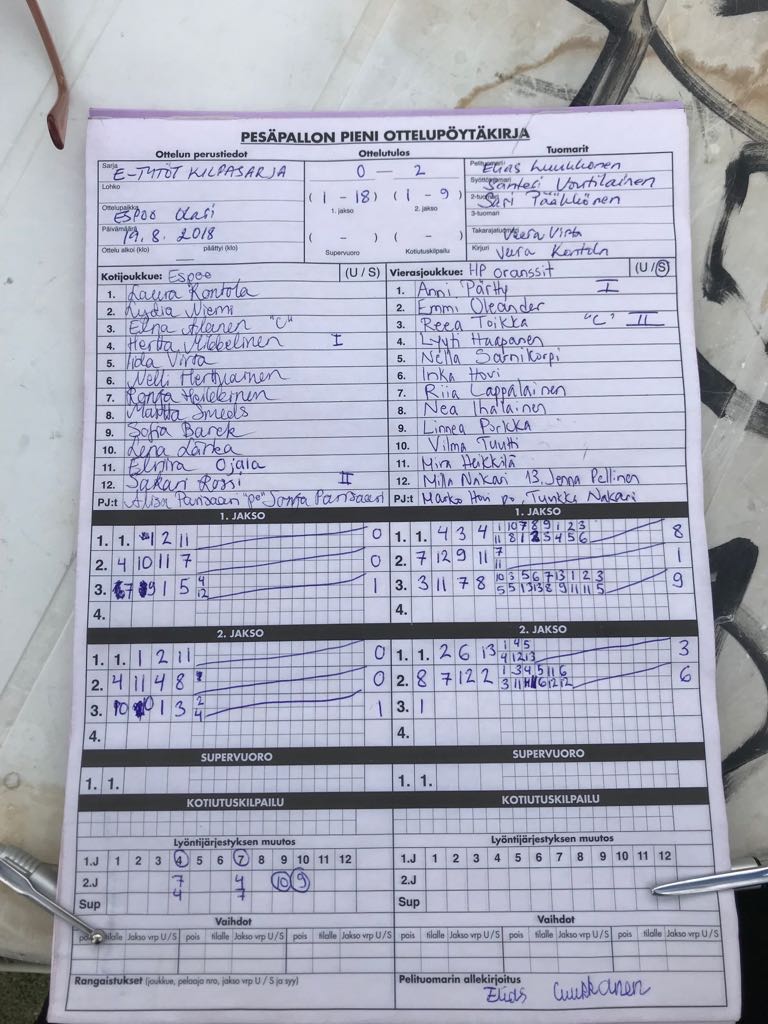 PESÄPALLON PIENI OTTELUPÖYTÄKIRJA
Ottelun perustiedot Ottelutulos Tuomarit
Sarja E-TYTÖT KILPASARJA 0 – 2 Pelituomari Elias Luukkonen
Lohko Syöttötuomari Santeri Voutilainen
( 1 - 18 ) ( 1 - 9 ) 2-tuomari Sari Pääkkönen
1. jakso 2. jakso 3-tuomari
Ottelupaikka ESPOO
Päivämäärä 19.8.2018 ( - ) ( - ) Takarajatuomari Veera Virta
Ottelu alkoi (klo) päättyi (klo) Supervuoro Kotiutuskilpailu Kirjuri Veera
Kotijoukkue: Espoo (U / S) Vierasjoukkue: HP oranssit (U / S)
1. Laura Rontola 1. Anni Pärtty I
2. Lydia Niemi 2. Emmi Oleander
3. Elna Alanen "C" 3. Reea Toikka "C" II
4. Hertta I 4. Lyyti Haapanen
5. Iida Virta 5. Nella Sarnikorpi
6. Nelli 6. Inka Hovi
7. Ronja 7. Riia Lappalainen
8. Martta Smeds 8. Nea Ihalainen
9. Sofia Barck 9. Linnea Pirkka
10. Lena Lärka 10. Vilma Tuutti
11. Elmira Ojala 11. Mira Heikkilä
12. Sakari Rossi II 12. Milla Nakari 13. Jenna Pellinen
PJ:t Alisa Pansaari "po" Jonja Pansaari PJ:t Marko Hovi po, Tuukka Nakari
1. JAKSO 1. JAKSO
1. 1. 1 2 11 0 1. 1. 4 3 4 1 10 7 8 9 1 2 3 8
11 8 1 2 5 4 5 6
2. 4 10 11 7 0 2. 7 12 9 11 7 1
11
3. 7 9 1 5 4 1 3. 3 11 7 8 10 3 5 6 7 13 1 2 3 9
12 5 5 13 13 8 9 11 11 5
4. 4.
2. JAKSO 2. JAKSO
1. 1. 1 2 11 0 1. 1. 2 6 13 1 4 5 3
4 12 13
2. 4 11 4 8 0 2. 8 7 12 2 1 3 4 5 11 6 6
3 11 6 12 12
3. 10 10 1 3 2 1 3. 1
4
4. 4.
SUPERVUORO SUPERVUORO
1. 1. 1. 1.
KOTIUTUSKILPAILU KOTIUTUSKILPAILU
Lyöntijärjestyksen muutos Lyöntijärjestyksen muutos
1.J 1 2 3 4 5 6 7 8 9 10 11 12 1.J 1 2 3 4 5 6 7 8 9 10 11 12
2.J 7 4 10 9 2.J
Sup 4 7 Sup
Vaihdot Vaihdot
pois tilalle Jakso vrp U / S pois tilalle Jakso vrp U / S pois tilalle Jakso vrp U / S pois tilalle Jakso vrp U / S pois tilalle Jakso vrp U / S pois tilalle Jakso vrp U / S
Rangaistukset (joukkue, pelaaja nro, jakso vrp U / S ja syy) Pelituomarin allekirjoitus
Elias Luukkonen